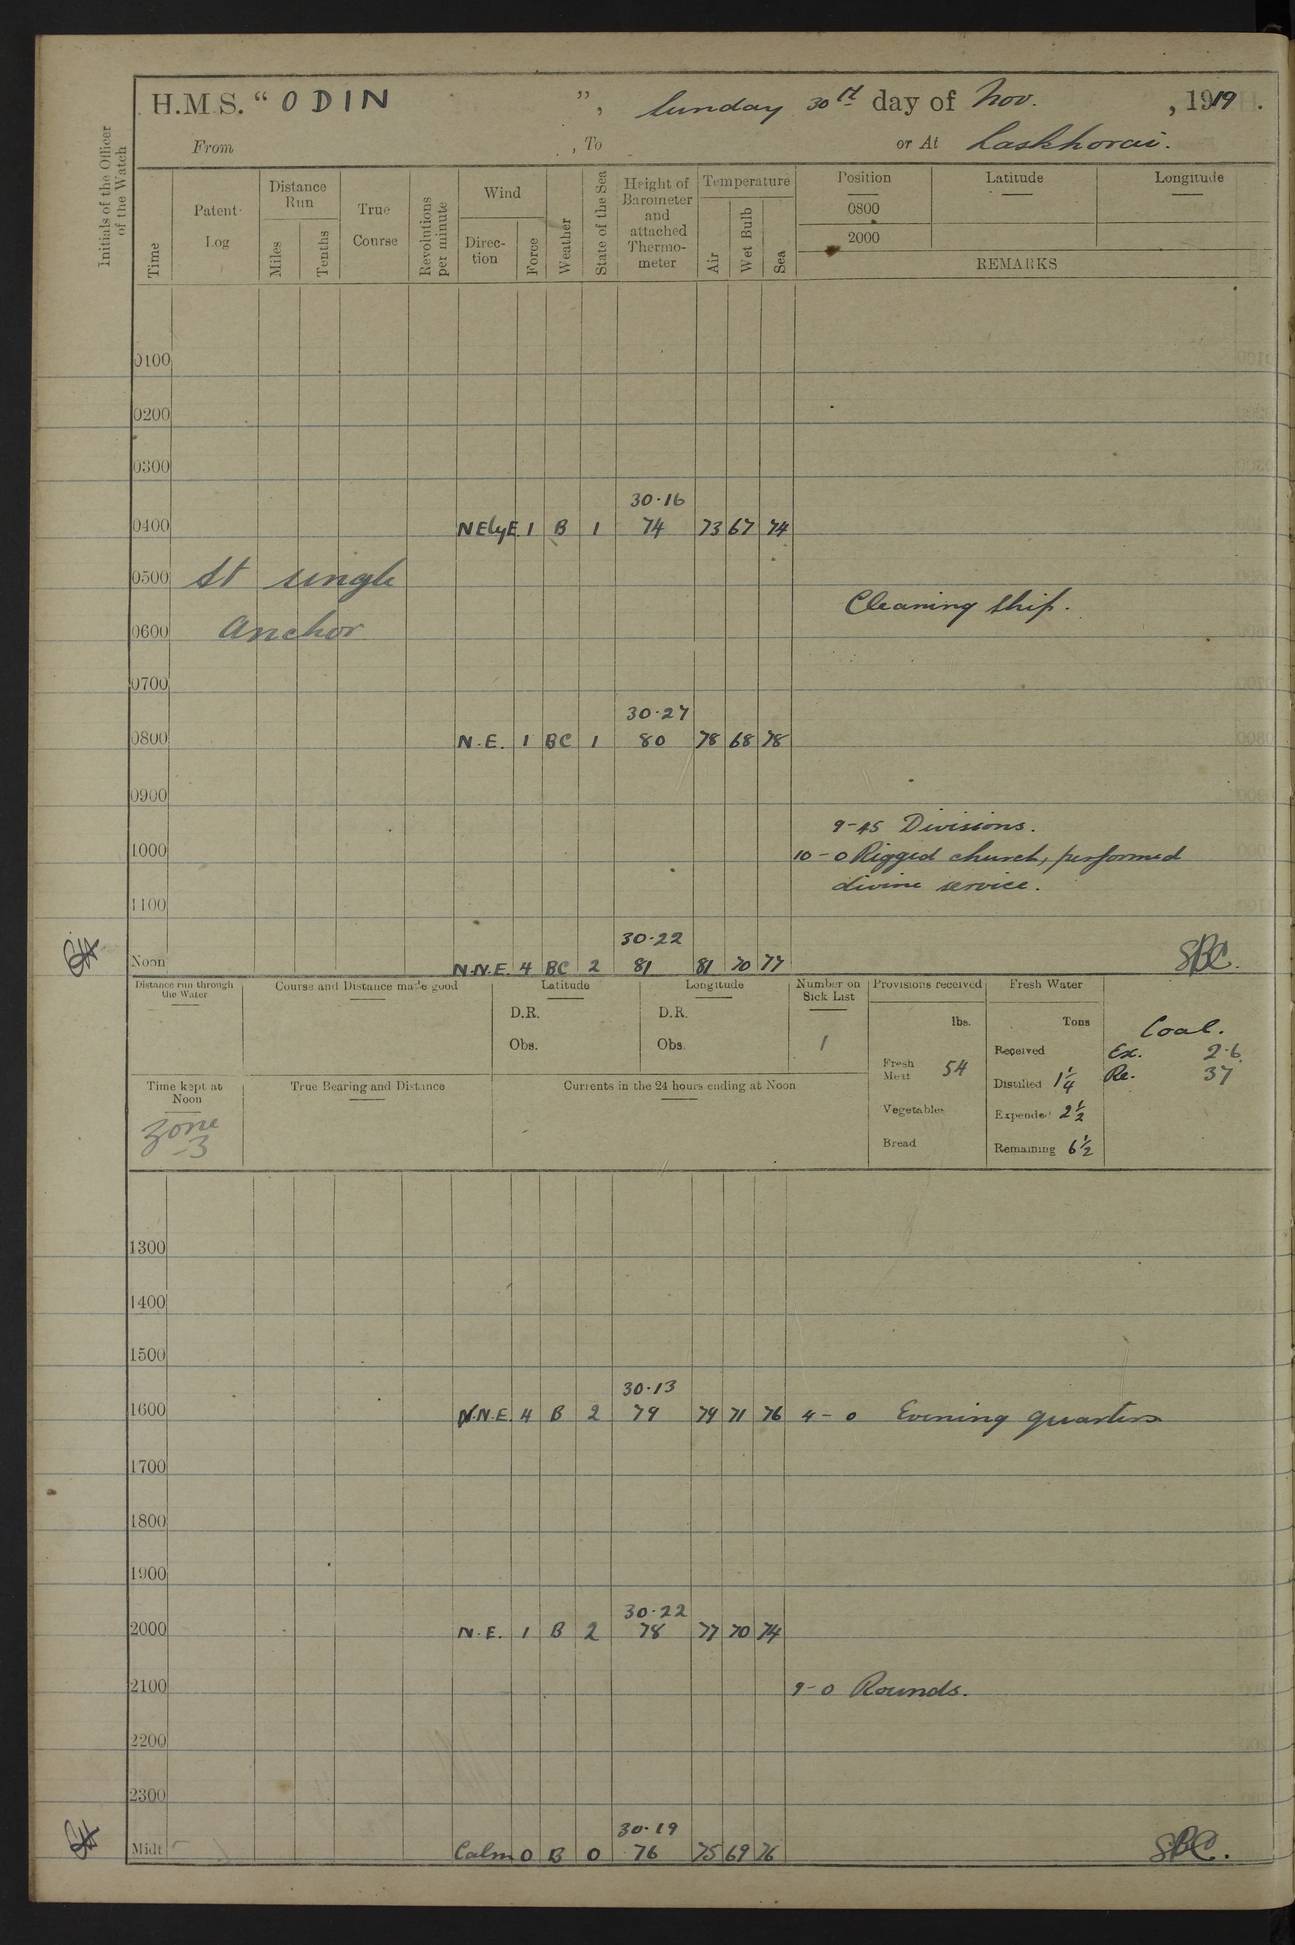 H.M.S. “ODIN”, Sunday 30th day of Nov., 1919.
From , To or At Laskhorai.
Initials of the Officer of the Watch
Time
Patent Log
Distance Run
Miles
Tenths
True Course
Revolutions per minute
Wind
Direc-tion
Force
Weather
State of the Sea
Height of Barometer and attached Thermo-meter
Temperature
Air
Wet Bulb
Sea
Position
Latitude
Longitude
0800
2000
REMARKS
0100
0200
0300
30·16
0400 NElyE. 1 B 1 74 73 67 74
0500 At single
Cleaning ship.
0600 Anchor
0700
30·27
0800 N.E. 1 BC 1 80 78 68 78
0900
9-45 Divisions.
1000 10-0 Rigged church, performed
divine service.
1100
30·22
Noon N.N.E. 4 BC 2 81 81 70 77 SBC.
Distance run through the Water
Course and Distance made good
Latitude
D.R.
Obs.
Longitude
D.R.
Obs.
Number on Sick List
1
Provisions received
lbs.
Fresh Meat 54
Vegetables
Bread
Fresh Water
Tons
Received
Distilled 1¼
Expended 2½
Remaining 6½
Coal.
Ex. 2·6
Re. 37
Time kept at Noon
Zone
-3
True Bearing and Distance
Currents in the 24 hours ending at Noon
1300
1400
1500
30·13
1600 N.N.E. 4 B 2 79 79 71 76 4-0 Evening quarters
1700
1800
1900
30·22
2000 N.E. 1 B 2 78 77 70 74
2100 9-0 Rounds.
2200
2300
30·19
Midt Calm 0 B 0 76 75 69 76 SBC.